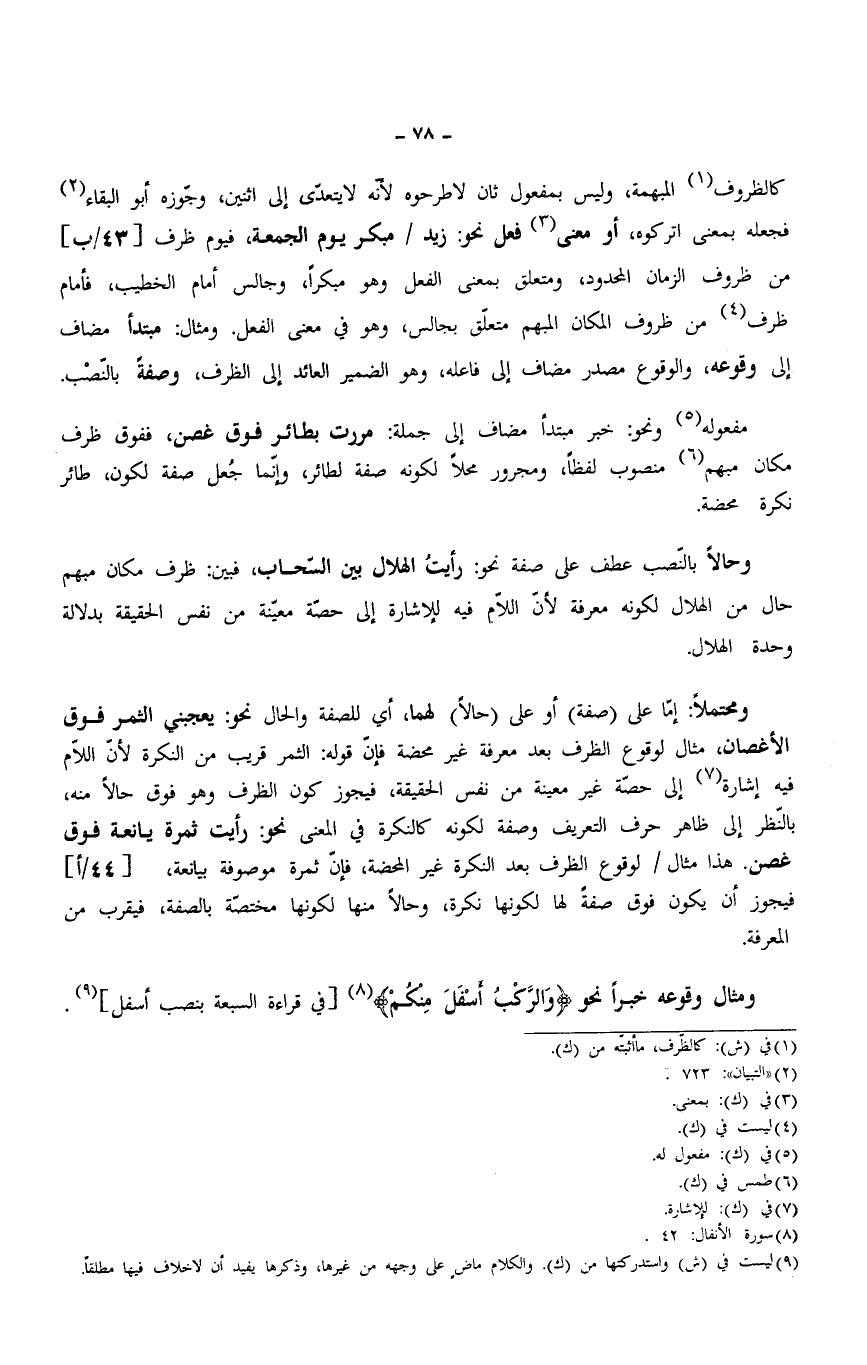 ـ ٧٨ ـ
كالظروف(١) المبهمة، وليس بمفعول ثان لاطرحوه لأنّه لايتعدّى إلى اثنين، وجوّزه أبو البقاء(٢)
فجعله بمعنى اتركوه، أو معنى(٣) فعل نحو: زيد / مبكر يوم الجمعة، فيوم ظرف [٤٣/ب]
من ظروف الزمان المحدود، ومتعلق بمعنى الفعل وهو مبكراً، وجالس أمام الخطيب، فأمام
ظرف(٤) من ظروف المكان المبهم متعلّق بجالس، وهو في معنى الفعل. ومثال: مبتدأ مضاف
إلى وقوعه، والوقوع مصدر مضاف إلى فاعله، وهو الضمير العائد إلى الظرف، وصفةً بالنّصْب.
مفعوله(٥) ونحو: خبر مبتدأ مضاف إلى جملة: مررت بطائر فوق غصن، ففوق ظرف
مكان مبهم(٦) منصوب لفظاً، ومجرور محلاً لكونه صفة لطائر، وإنّما جُعل صفة لكون، طائر
نكرة محضة.
وحالاً بالنّصب عطف على صفة نحو: رأيتُ الهلال بين السّحاب، فبين: ظرف مكان مبهم
حال من الهلال لكونه معرفة لأنّ اللاّم فيه للإشارة إلى حصّة معيّنة من نفس الحقيقة بدلالة
وحدة الهلال.
ومحتملاً: إمّا على (صفة) أو على (حالاً) لهما، أي للصفة والحال نحو: يعجبني الثمر فوق
الأغصان، مثال لوقوع الظرف بعد معرفة غير محضة فإنّ قوله: الثمر قريب من النكرة لأنّ اللاّم
فيه إشارة(٧) إلى حصّة غير معينة من نفس الحقيقة، فيجوز كون الظرف وهو فوق حالاً منه،
بالنّظر إلى ظاهر حرف التعريف وصفة لكونه كالنكرة في المعنى نحو: رأيت ثمرة يانعة فوق
غصن. هذا مثال / لوقوع الظرف بعد النكرة غير المحضة، فإنّ ثمرة موصوفة بيانعة، [٤٤/أ]
فيجوز أن يكون فوق صفةً لها لكونها نكرة، وحالاً منها لكونها مختصّة بالصفة، فيقرب من
المعرفة.
ومثال وقوعه خبراً نحو ﴿وَالرَّكْبُ أَسْفَلَ مِنْكُمْ﴾(٨) [في قراءة السبعة بنصب أسفل](٩).
(١) في (ش): كالظّرف، ماأثبتّه من (ك).
(٢) «التبيان»: ٧٢٣ .
(٣) في (ك): بمعنى.
(٤) ليست في (ك).
(٥) في (ك): مفعول له.
(٦) طمس في (ك).
(٧) في (ك): للإشارة.
(٨) سورة الأنفال: ٤٢ .
(٩) ليست في (ش) واستدركتها من (ك). والكلام ماضٍ على وجهه من غيرها، وذكرها يفيد أن لاخلاف فيها مطلقاً.